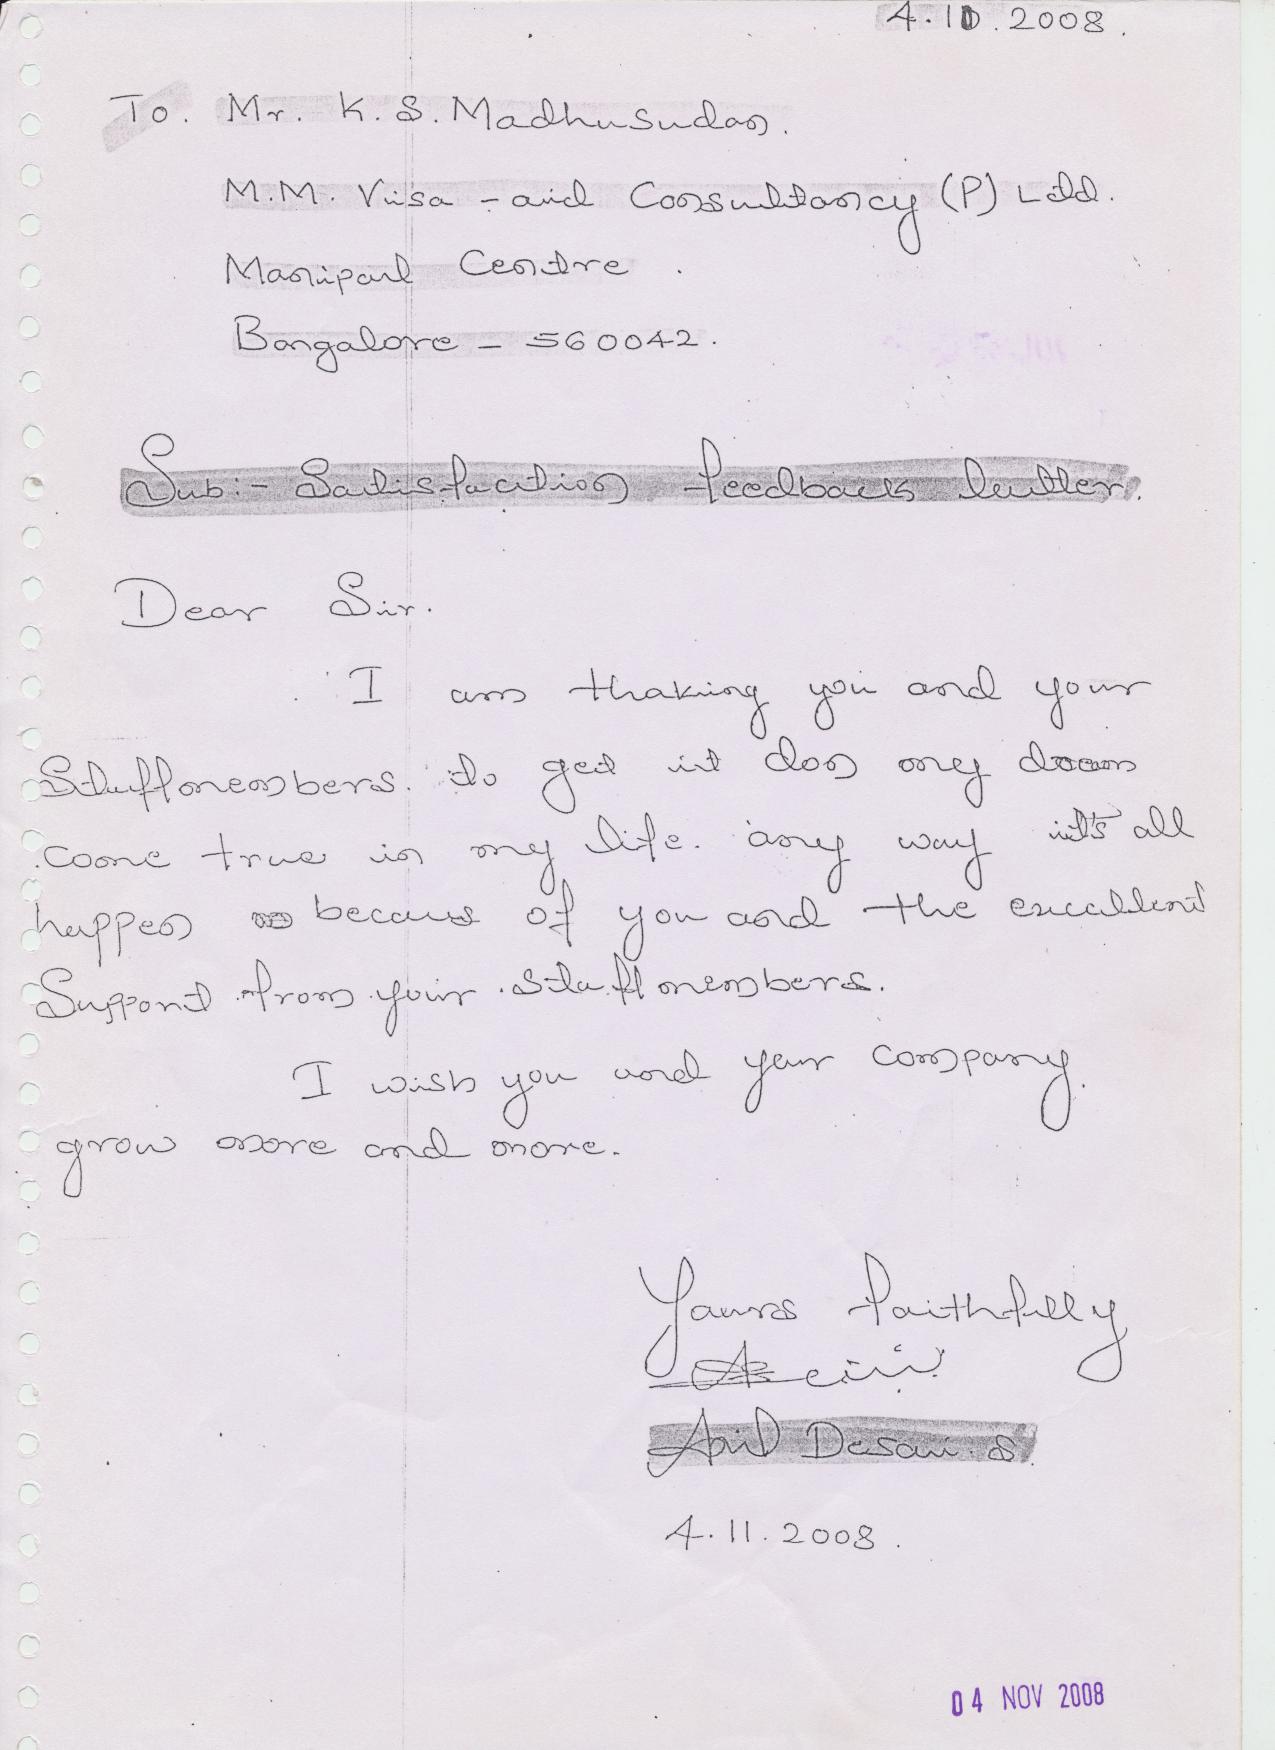 4.10.2008.
To. Mr. K.S. Madhusudan.
M.M. Visa - and Consultancy (P) Ltd.
Manipaul Centre.
Bangalore - 560042.
Sub:- Satisfaction feedback leutter.
Dear Sir.
I am thaking you and your
Stuffmembers. to get it don my dream
come true in my life. any way it's all
huppen becaus of you and the excellent
Support from your Staffmembers.
I wish you and your company.
grow more and more.
Yours faithfully
Anil Desai. S.
4.11.2008.
04 NOV 2008